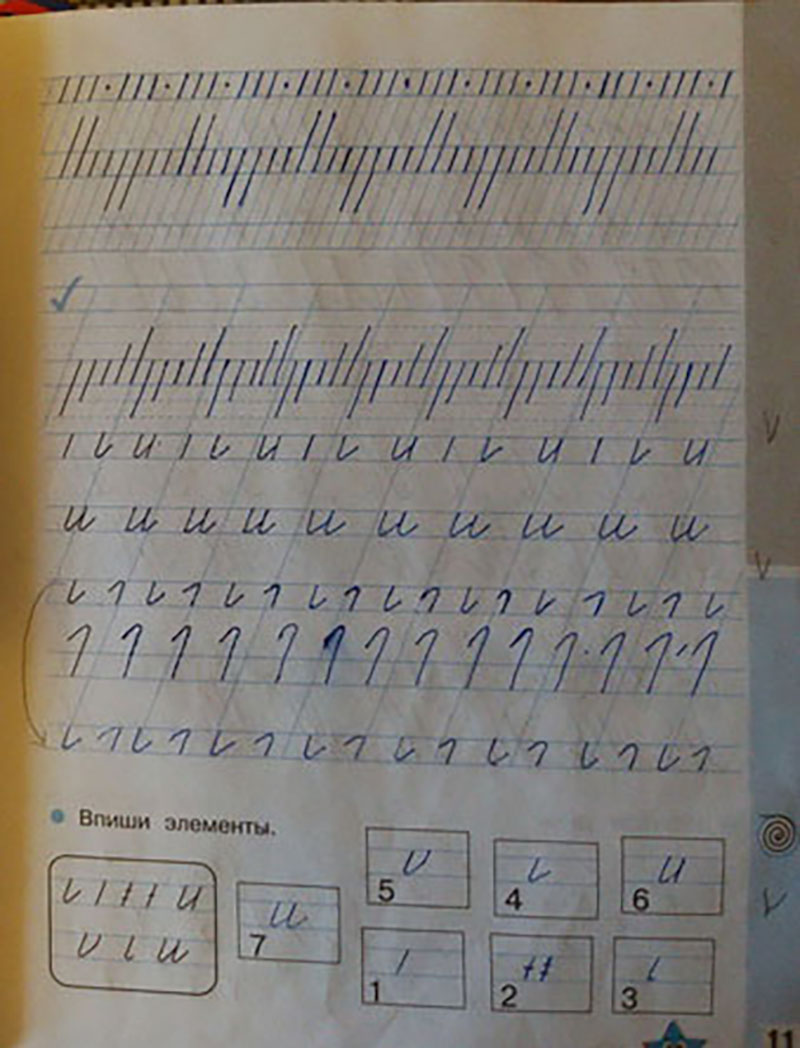 Впиши элементы.
5 4 6
7
1 2 3
11